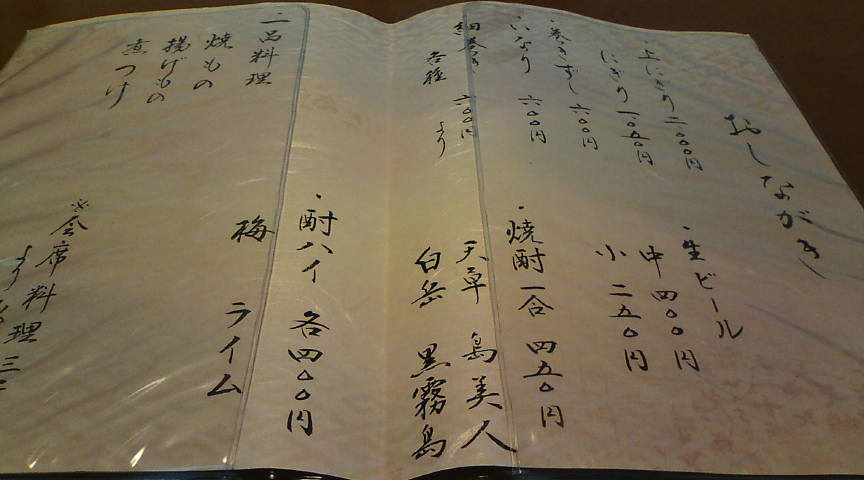 おしながき
・上にぎり 二〇〇〇円
にぎり 一〇五〇円
・巻きずし 六〇〇円
・いなり 六〇〇円
・細巻き
各種 六〇〇円
より
・生ビール
中 四〇〇円
小 二五〇円
・焼酎一合 四五〇円
天草 島美人
白岳 黒霧島
・酎ハイ 各四〇〇円
梅 ライム
・一品料理
焼もの
揚げもの
煮つけ
※会席料理 三
より